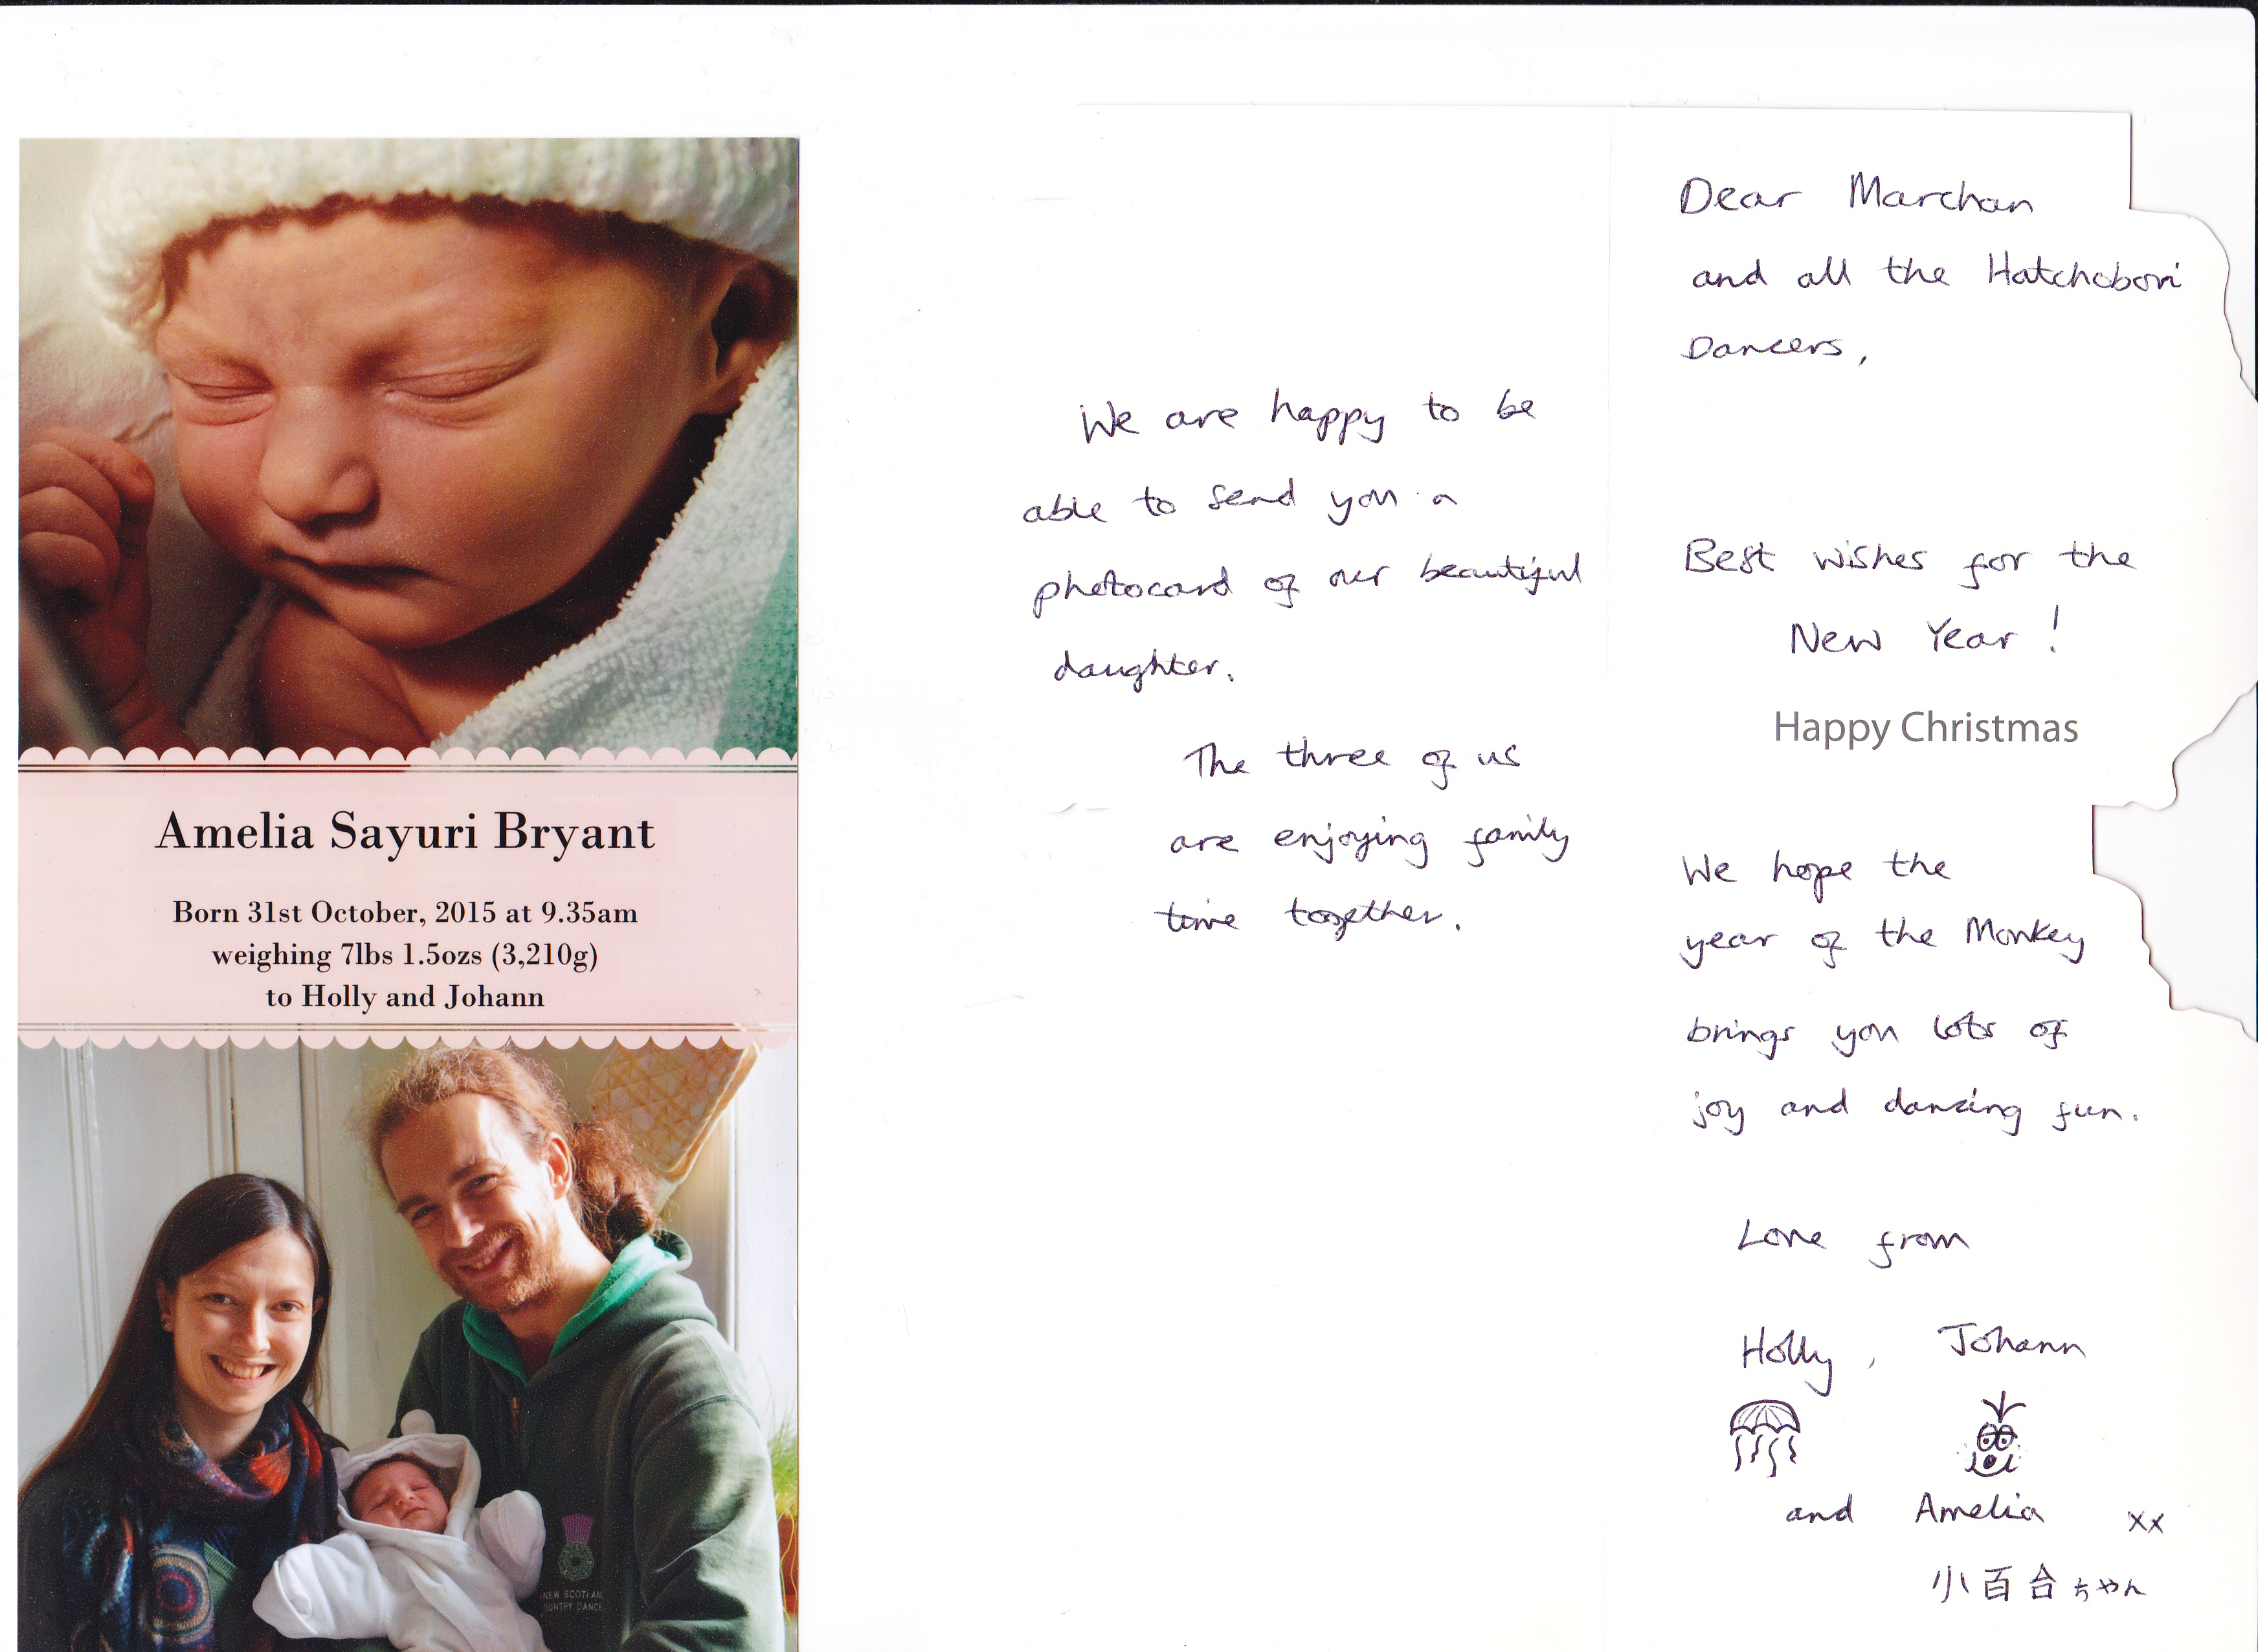 Amelia Sayuri Bryant
Born 31st October, 2015 at 9.35am
weighing 7lbs 1.5ozs (3,210g)
to Holly and Johann
NEW SCOTLAN
OUNTRY DANCE
We are happy to be
able to send you a
photocard of our beautiful
daughter.
The three of us
are enjoying family
time together.
Dear Marchan
and all the Hatchobori
Dancers,
Best wishes for the
New Year!
Happy Christmas
We hope the
year of the Monkey
brings you lots of
joy and dancing fun.
Love from
Holly, Johann
and Amelia xx
小百合ちゃん